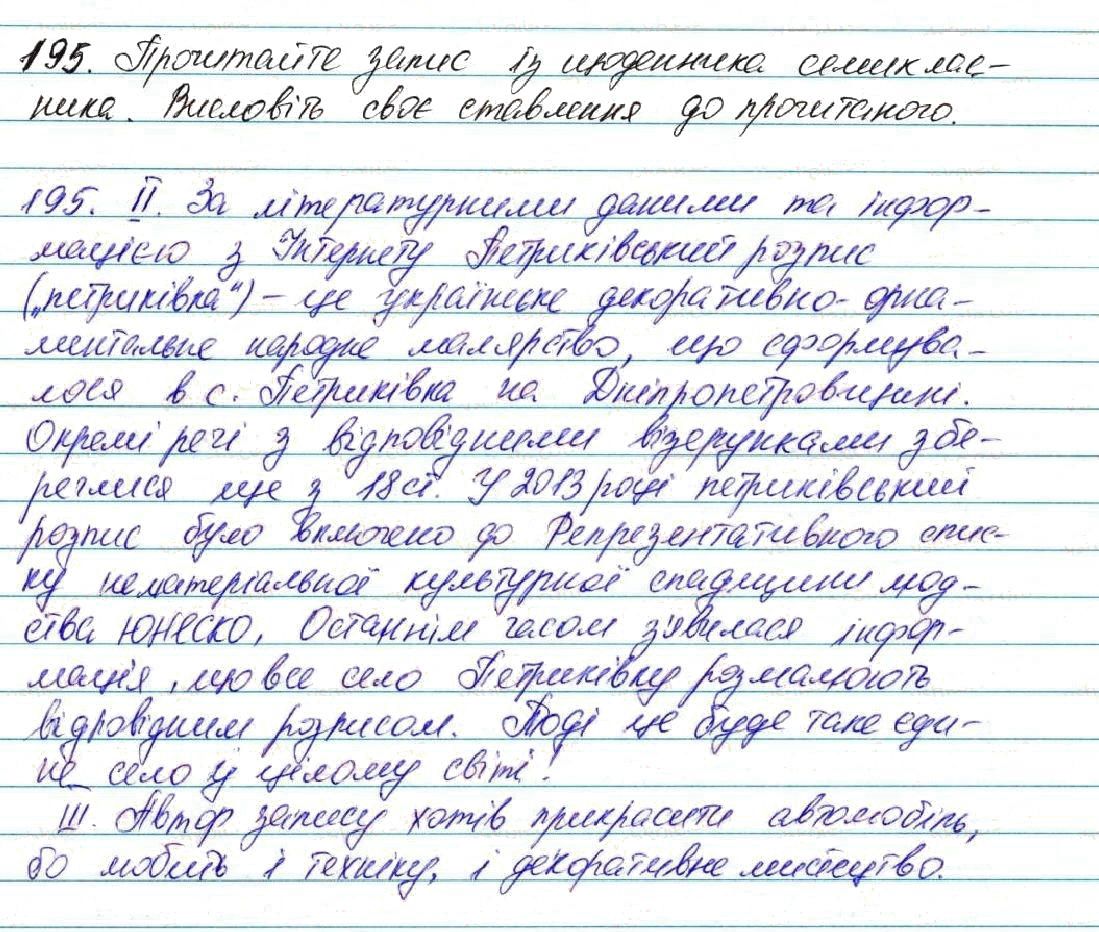 195. Прочитайте запис із щоденника семиклас-
ника. Висловіть своє ставлення до прочитаного.
195. II. За літературними даними та інфор-
мацією з Інтернету Петриківський розпис
(„петриківка“) – це українське декоративно-орна-
ментальне народне малярство, що сформува-
лося в с. Петриківка на Дніпропетровщині.
Окремі речі з відповідними візерунками збе-
реглися ще з 18 ст. У 2013 році петриківський
розпис було включено до Репрезентативного спис-
ку нематеріальної культурної спадщини люд-
ства ЮНЕСКО. Останнім часом з'явилася інфор-
мація, що все село Петриківку розмалюють
відповідним розписом. Тоді це буде таке єди-
не село у цілому світі!
III. Автор запису хотів прикрасити автомобіль,
бо любить і техніку, і декоративне мистецтво.